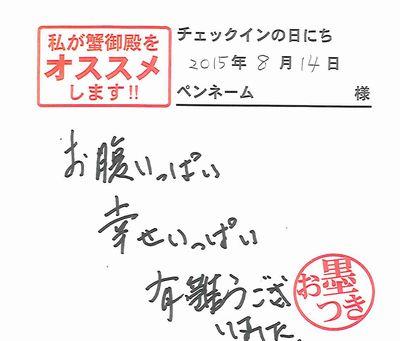 私が蟹御殿を
オススメ
します!!
チェックインの日にち
2015年8月14日
ペンネーム 様
お腹いっぱい
幸せいっぱい
有難うござ
いました。
お墨
つき